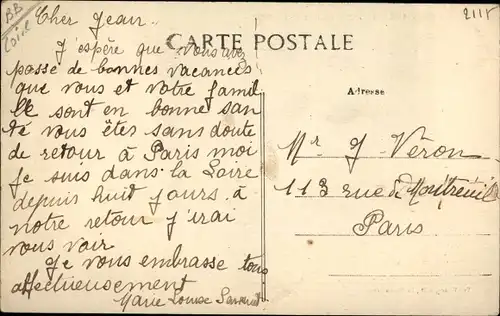 BB
Loire
2115
Cher Jean.
CARTE POSTALE
J'espère que vous avez
passe de bonnes vacances
que vous et votre famil
le sont en bonne san
té vous êtes sans doute
de retour à Paris moi
je suis dans la Loire
depuis huit jours. à
notre retour j'irai
vous voir
Je vous embrasse tous
affectueusement
Marie Louise
Adresse
Mr J Veron
113 rue de Montreuil
Paris